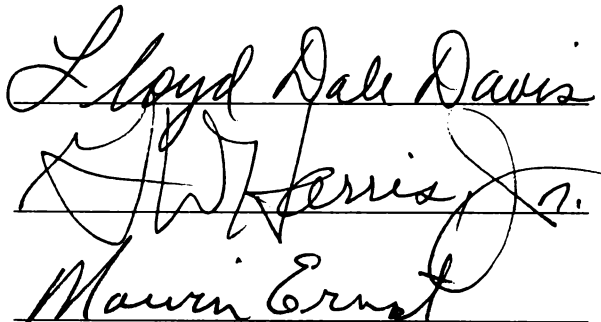 Lloyd Dale Davis
W Harris Jr.
Ernst